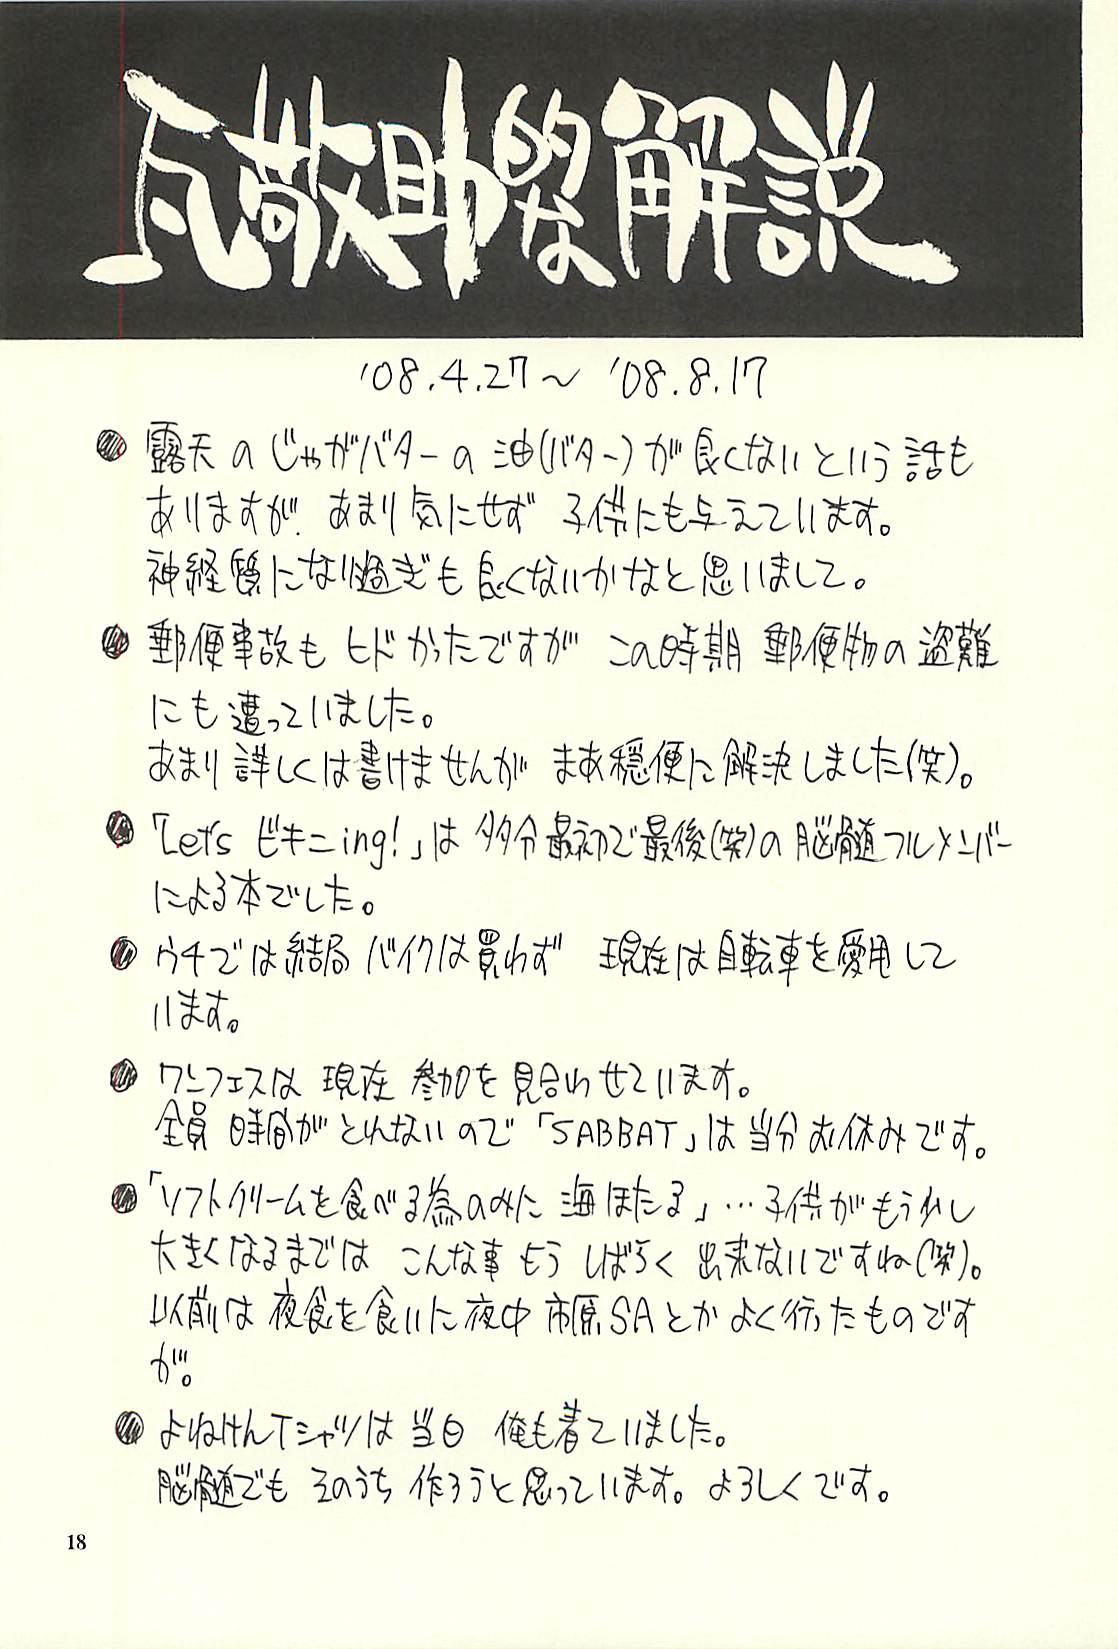 瓦敬助的な解説
'08.4.27～'08.8.17
●露天のじゃがバターの油(バター)が良くないという話も
ありますが、あまり気にせず 子供にも与えています。
神経質になり過ぎも良くないかなと思いまして。
●郵便事故も ヒドかったですが この時期 郵便物の盗難
にも遭っていました。
あまり詳しくは書けませんが まあ穏便に解決しました(笑)。
●「Let's ビキニing!」は 多分最初で最後(笑)の 脳髄フルメンバー
による本でした。
●ウチでは結局 バイクは買わず 現在は自転車を愛用して
います。
●ワンフェスは 現在 参加を見合わせています。
全員 時間がとれないので「SABBAT」は当分お休みです。
●「ソフトクリームを食べる為のみに 海ほたる」…子供がもう少し
大きくなるまでは こんな事もう しばらく 出来ないですね(笑)。
以前は 夜食を食いに夜中 市原SAとか よく行ったものです
が。
●よねけんTシャツは当日 俺も着ていました。
脳髄でも そのうち 作ろうと思っています。よろしくです。
18